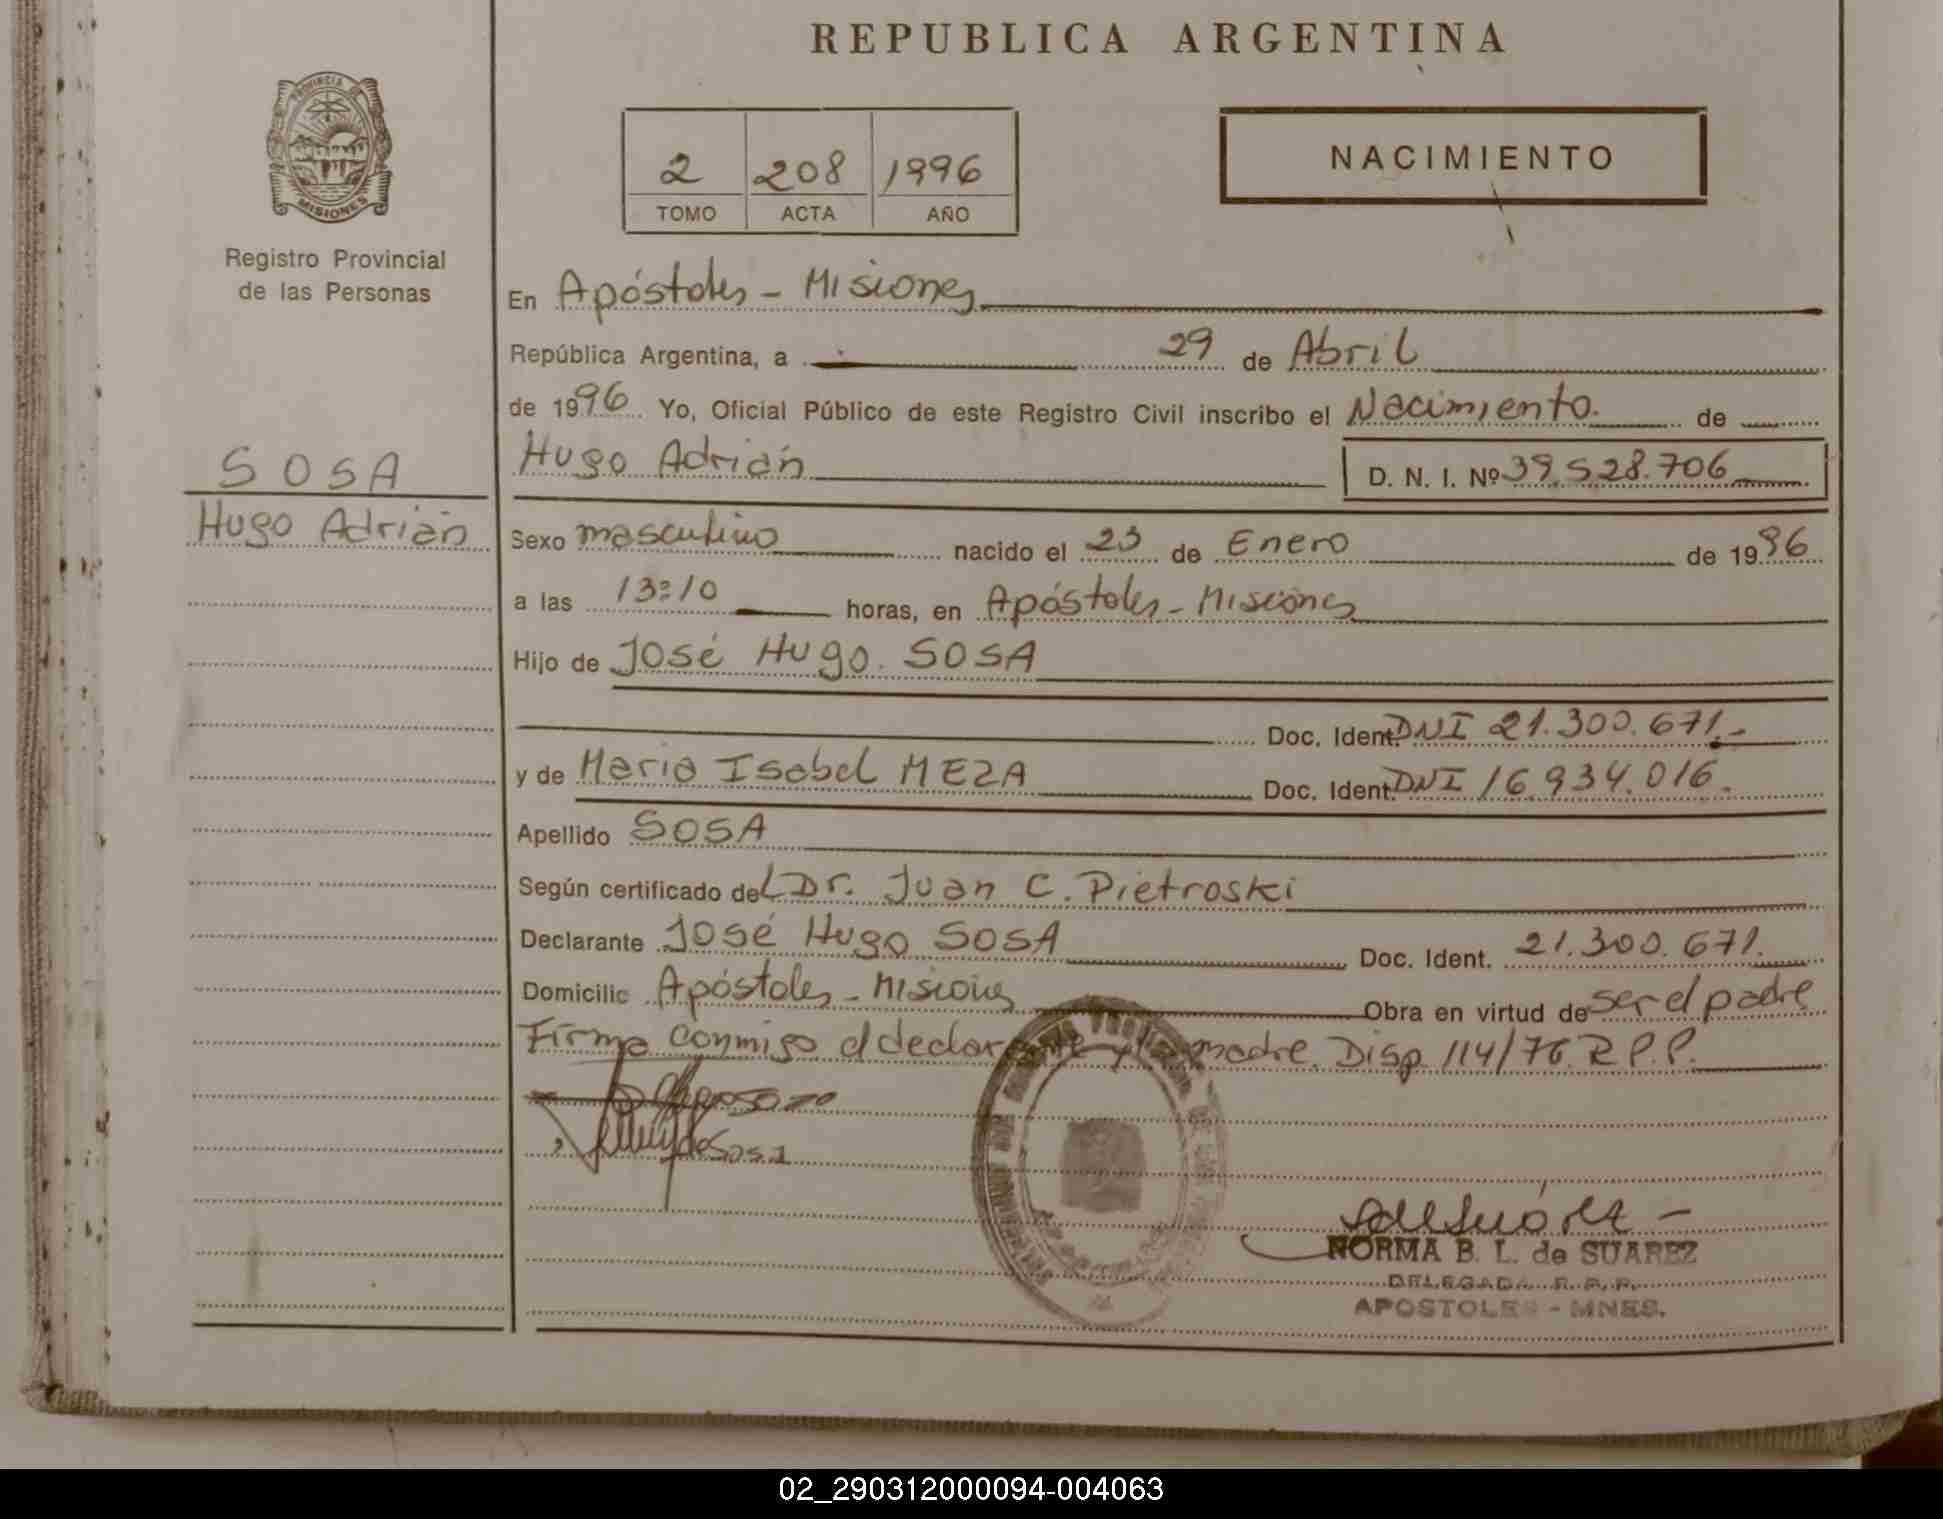 REPUBLICA ARGENTINA
PROVINCIA DE
MISIONES
Registro Provincial
de las Personas
2 208 1996
TOMO ACTA AÑO
NACIMIENTO
SOSA
Hugo Adrián
En Apóstoles - Misiones
República Argentina, a 29 de Abril
de 1996 Yo, Oficial Público de este Registro Civil inscribo el Nacimiento. de
Hugo Adrián D. N. I. Nº 39.528.706
Sexo masculino nacido el 23 de Enero de 1996
a las 13:10 horas, en Apóstoles - Misiones
Hijo de José Hugo SOSA
Doc. Ident. DNI 21.300.671.-
y de Maria Isabel MEZA Doc. Ident. DNI 16.934.016.
Apellido SOSA
Según certificado del Dr. Juan C. Pietroski
Declarante José Hugo SOSA Doc. Ident. 21.300.671.
Domicilio Apóstoles - Misiones Obra en virtud de ser el padre
Firma conmigo el declarante y la madre. Disp. 114/76 R.P.P.
de Sosa
NORMA B. L. de SUAREZ
DELEGADA R. P. P.
APOSTOLES - MNES.
02_290312000094-004063